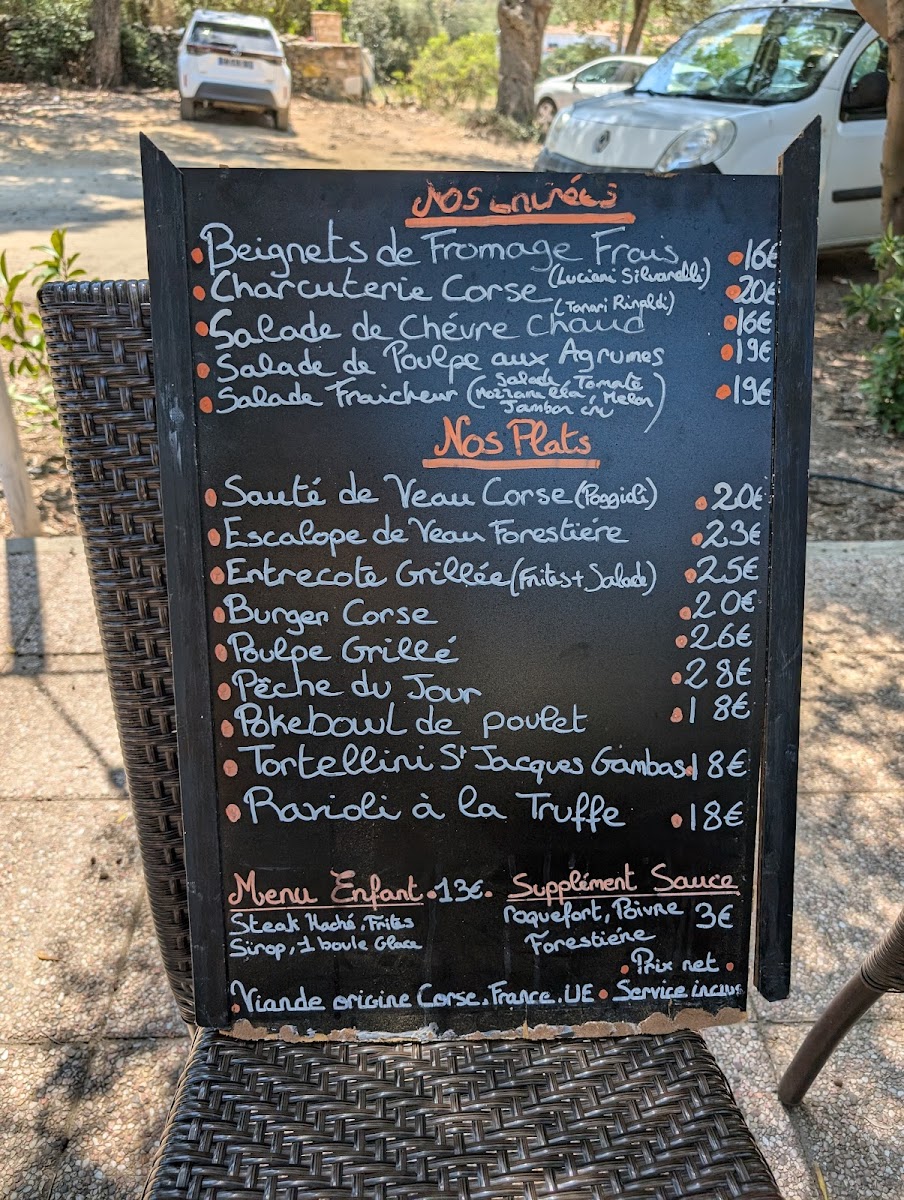 Nos Entrées
• Beignets de Fromage Frais • 16€
• Charcuterie Corse (Luciani Silvarelli) • 20€
(Tonari Rinaldi)
• Salade de Chévre Chaud • 16€
• Salade de Poulpe aux Agrumes • 19€
• Salade Fraicheur (Salade, Tomate • 19€
Mozzarella, Melon
Jambon cru)
Nos Plats
• Sauté de Veau Corse (Poggioli) • 20€
• Escalope de Veau Forestiére • 23€
• Entrecote Grillée (Frites + Salade) • 25€
• Burger Corse • 20€
• Poulpe Grillé • 26€
• Pêche du Jour • 28€
• Pokebowl de poulet • 18€
• Tortellini St Jacques Gambas • 18€
• Ravioli à la Truffe • 18€
Menu Enfant • 13€ •
Steak Haché, Frites
Sirop, 1 boule Glace
Supplément Sauce
roquefort, Poivre 3€
Forestiére
• Prix net •
• Viande origine Corse, France, UE • Service inclus